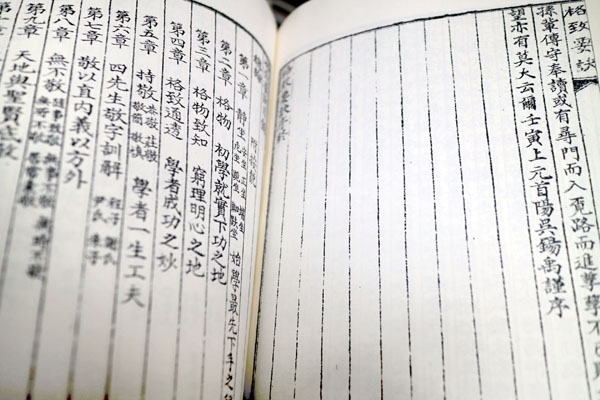 格致要訣
孫童傳守奉讀或有尋門而入覓路而進孳孳不已
望亦有莫大云爾壬寅上元首陽吳錫禹謹序
第一章 靜坐 始學最先下手之
第二章 格物 初學就實下功之地
第三章 格物致知 窮理明心之地
第四章 格致通透 學者成功之妙
第五章 持敬 恭敬 莊敬 敬簡 敬慎 學者一生工夫
第六章 四先生敬字訓解 程子 謝氏 尹氏 朱子
第七章 敬以直內義以方外
第八章 無不敬 隨事致敬
第九章 天地與聖賢